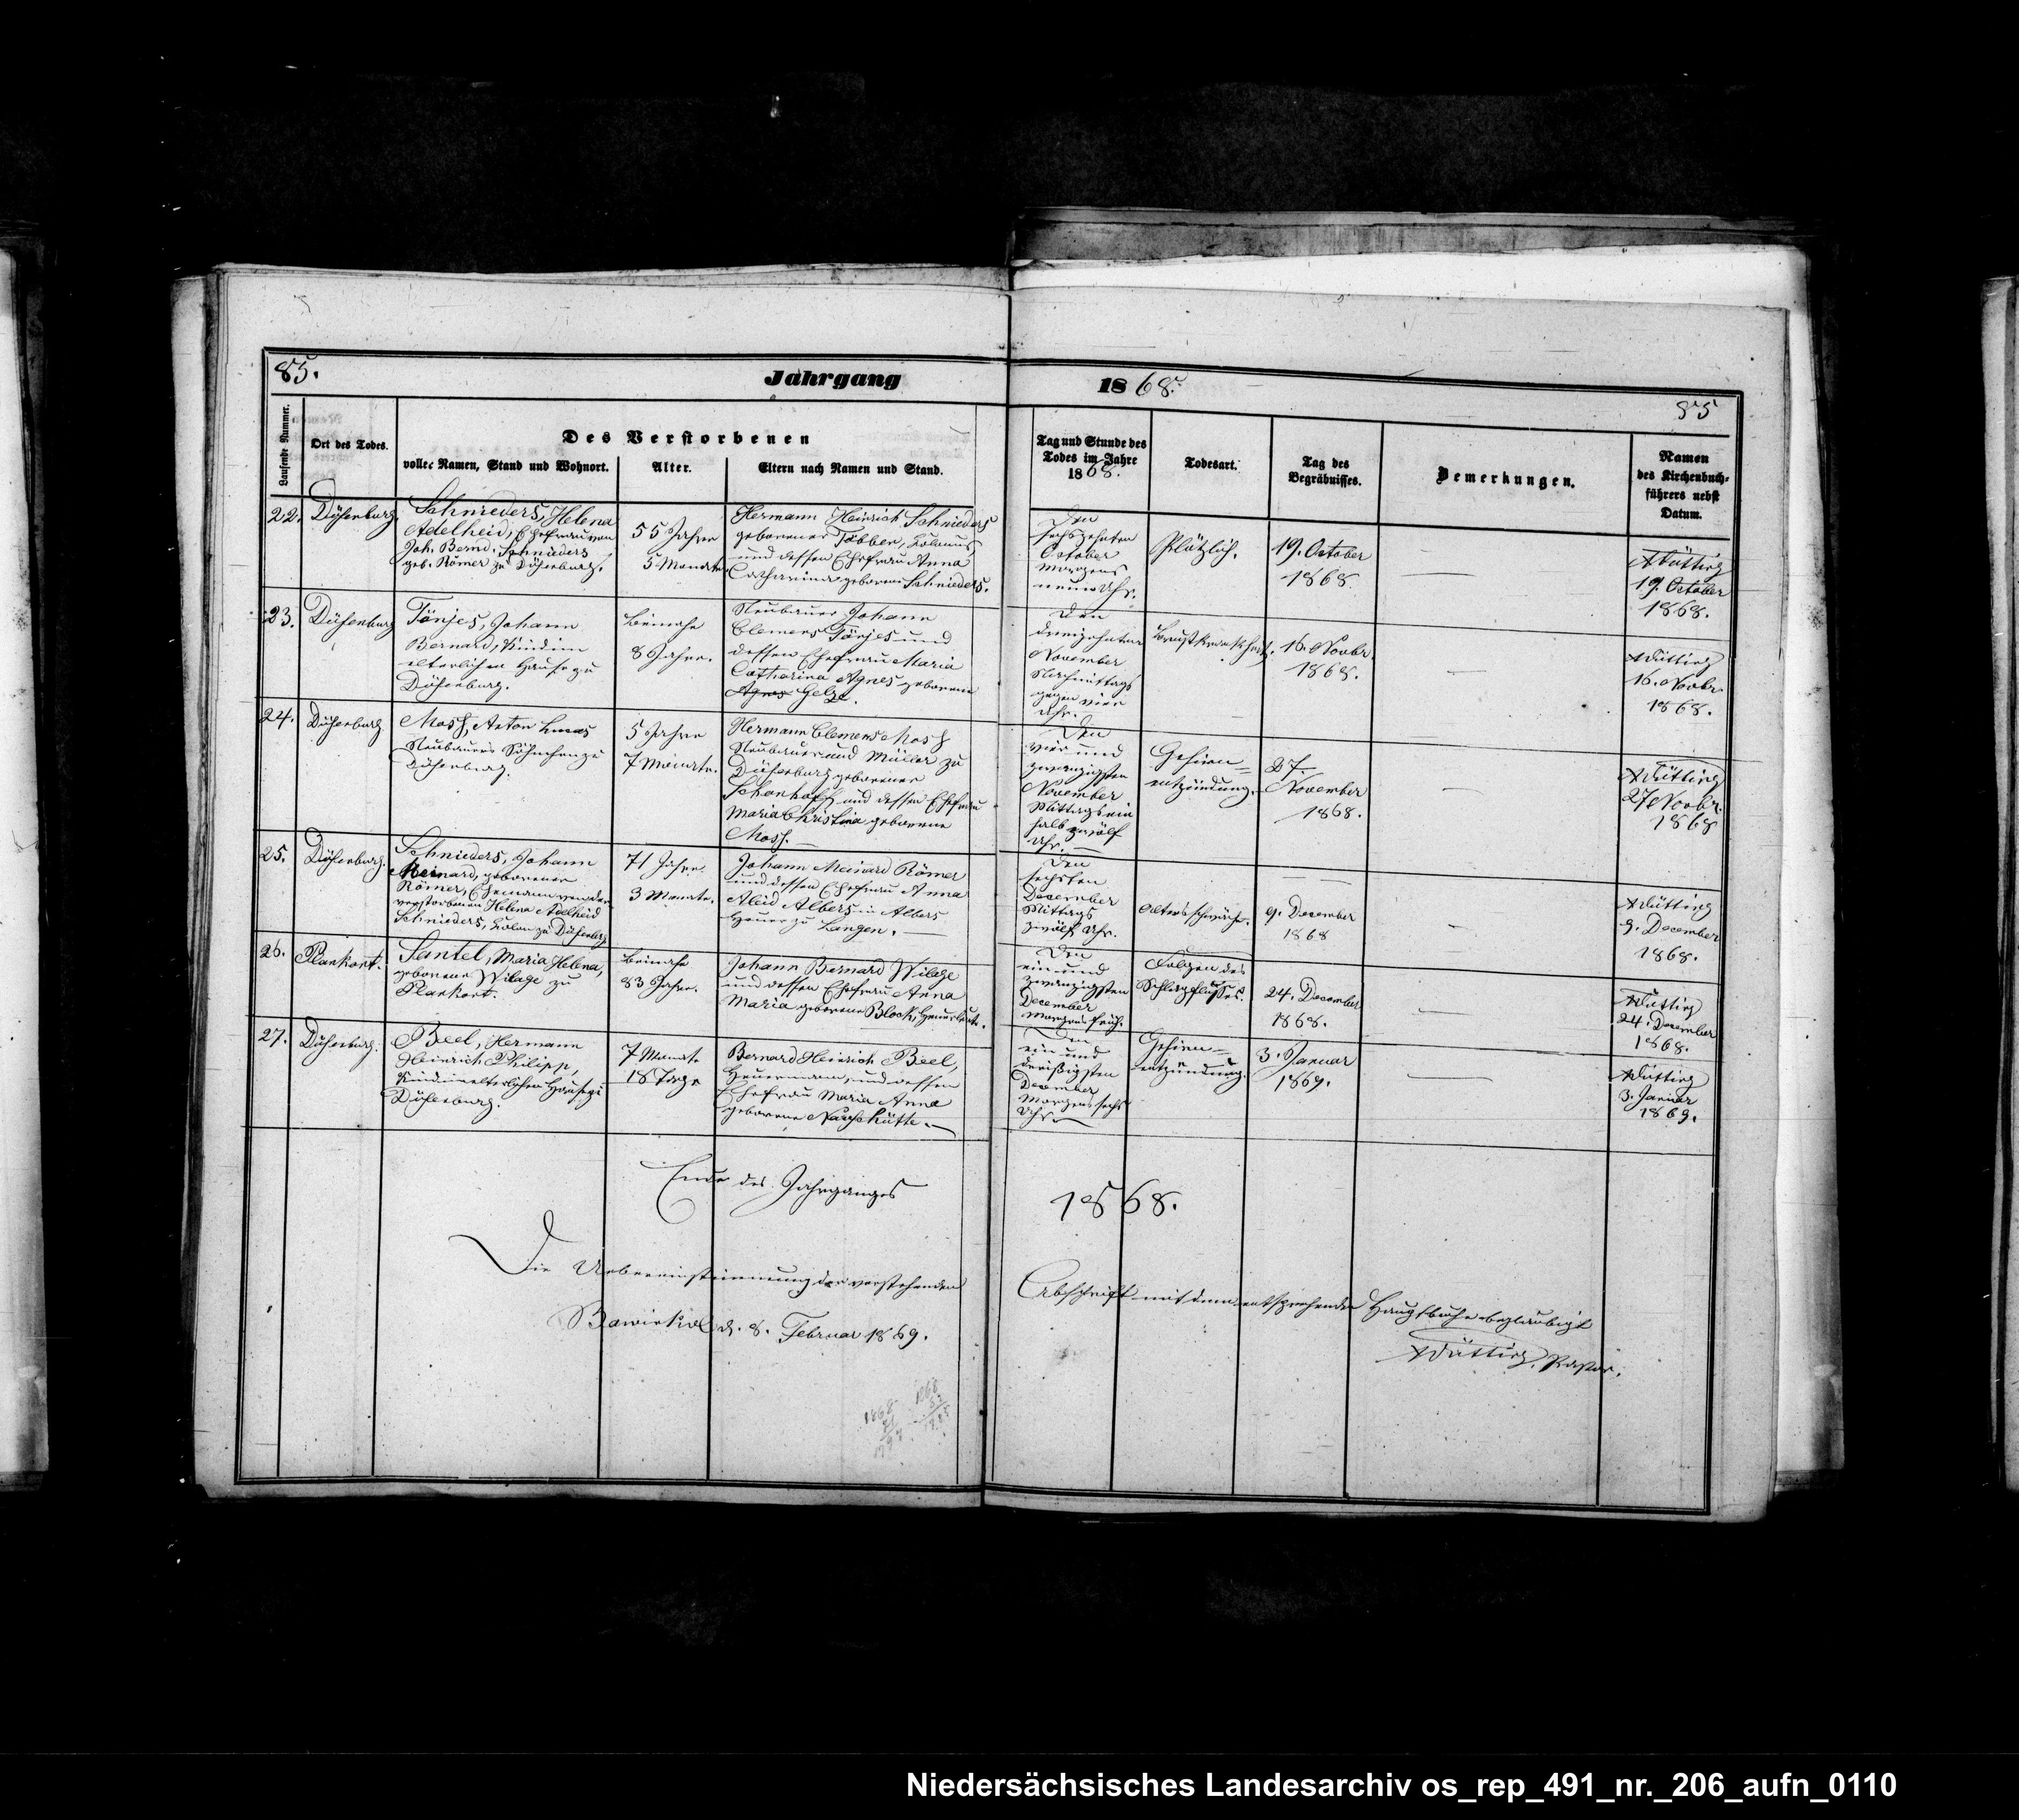 85.
Jahrgang
1868.
85
Laufende Nummer.
Ort des Todes.
Des Verstorbenen
voller Namen, Stand und Wohnort.
Alter.
Eltern nach Namen und Stand.
Tag und Stunde des
Todes im Jahre
1868.
Todesart.
Tag des
Begräbnisses.
Bemerkungen.
Namen
des Kirchenbuch-
führers nebst
Datum.
22.
Düsenburg.
Schnieders, Helena
Adelheid, Ehefrau von
Joh. Bernd. Schnieders
geb. Römer zu Düsenburg.
55 Jahre
5 Monate.
Hermann Heinrich Schnieders
geborener Többen, Colonus,
und dessen Ehefrau Anna
Catharina geborene Schnieders.
Den
sechszehnten
October
Morgens
neun Uhr.
Plötzlich.
19. October
1868.
19. October
1868.
23.
Düsenburg
Tönjes, Johann
Bernard, Kind im
elterlichen Hause zu
Düsenburg.
beinahe
8 Jahre.
Neubauer Johann
Clemens Tönjes und
dessen Ehefrau Maria
Catharina Agnes geborene
Agnes Gelze.
Den
dreizehnten
November
Nachmittags
gegen vier
Uhr.
Brustkrankheit.
16. Novbr.
1868.
16. Novbr
1868.
24.
Düsenburg
Mosch, Anton Lucas
Neubauers Söhnchen zu
Düsenburg.
5 Jahre
7 Monate.
Hermann Clemens Mosch
Neubauer und Müller zu
Düsenburg geborener
Schonhoff und dessen Ehefrau
Maria Christina geborene
Mosch.
Den
vier und
zwanzigsten
November
Mittags ein
halb zwölf
Uhr.
Gehirn=
entzündung.
27.
November
1868.
27 Novbr.
1868
25.
Düsenburg.
Schnieders, Johann
Meinard, geborener
Römer, Ehemann von der
verstorbenen Helena Adelheid
Schnieders, Colon zu Düsenburg
71 Jahre.
3 Monate.
Johann Meinard Römer
und dessen Ehefrau Anna
Aleid Albers in Albers
Heuer zu Langen.
Den
sechsten
December
Mittags
zwölf Uhr.
Altersschwäche.
9. December
1868
9. December
1868.
26.
Plankort.
Santel, Maria Helena,
geborene Wilage zu
Plankort.
beinahe
83 Jahre.
Johann Bernard Wilage
und dessen Ehefrau Anna
Maria geborene Block, Heuerleute.
Den
ein und
zwanzigsten
December
Morgens früh.
Folgen des
Schlagflusses.
24. December
1868.
24. December
1868.
27.
Düsenburg.
Beel, Hermann
Heinrich Philipp,
Kind im elterlichen Hause zu
Düsenburg.
7 Monate
18 Tage
Bernard Heinrich Beel,
Heuermann, und dessen
Ehefrau Maria Anna
geborene
Den
ein und
dreißigsten
December
Morgens sechs
Uhr
Gehirn=
entzündung.
3. Januar
1869.
3. Januar
1869.
Ende des Jahrganges
1868.
Die Uebereinstimmung der vorstehenden
Abschrift mit dem entsprechenden Hauptbuche beglaubigt
Bawinkel d. 8. Februar 1869.
Pastor.
1868
71
1797
Niedersächsisches Landesarchiv os_rep_491_nr._206_aufn_0110